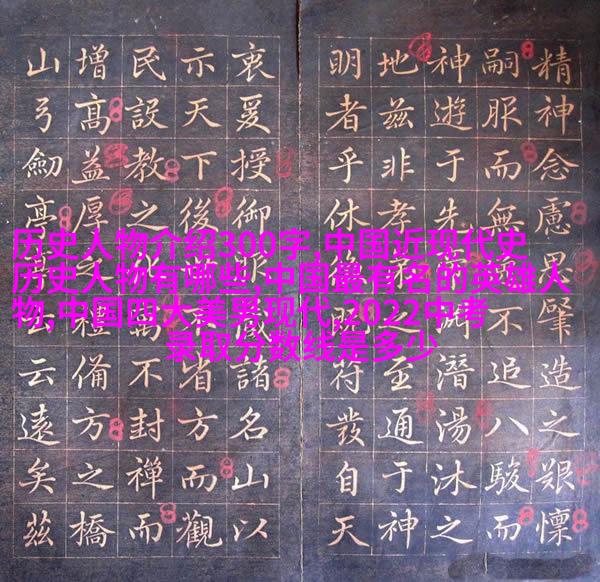 历史人物介绍300字,中国近现代史
历史人物有哪些,中国最有名的英雄人
物,中国四大美男现代,2022中考
录取分数线是多少
精神念慮愚肇造之艱懍
嗣服而無不追八駿而
神遊于先潛湯沐之
地茲非孝之至通于神
明者乎休符發自天
衷爰授御諸名山以
示天下後省方而觀
民設教之不封禪而
增高益厚禮備方之橋
山弓劍亭云遠矣茲